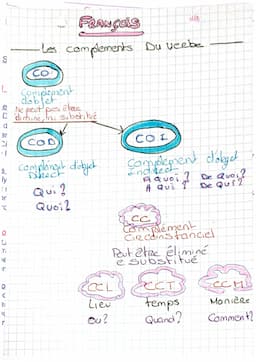 FRANÇOIS
Les complements Du verbe
CO
Complement
d'objet
Ne peut pas être
eliminé, ni substitué
COD
COI
complément d'objet
Direct
Complement d'objet
indirect
Qui ?
Quoi ?
A quoi ? De Quoi ?
A qui ? De Qui ?
CC
Complément
Circonstanciel
Peut être éliminé
e substitué
CCL
CCT
CCM
Lieu
temps
Manière
Ou ?
Quand ?
Comment ?